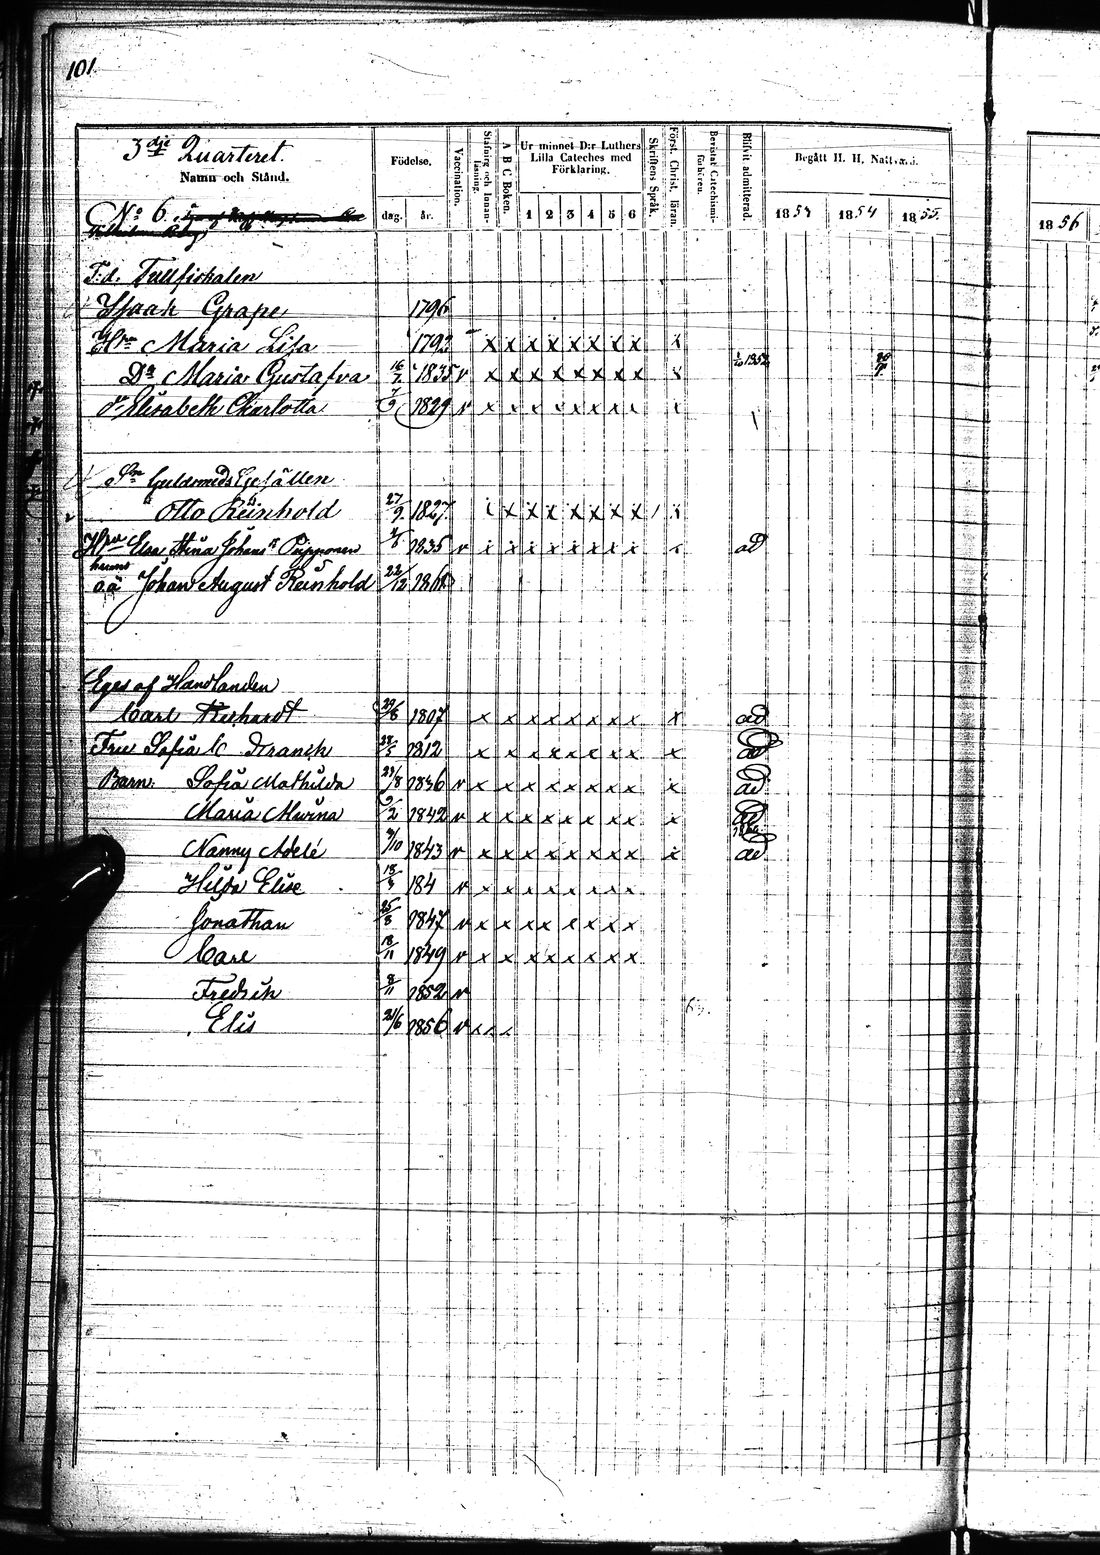 101.
3dje Quarteret.
Namn och Stånd.
Födelse.
dag. år.
Vaccination.
Stafning och Innan-läsning.
A B C Boken.
Ur minnet D:r Luthers Lilla Cateches med Förklaring.
1 2 3 4 5 6
Skriftens Språk.
Först. Christ. läran.
Bevistat Catechismi-förhören.
Blifvit admitterad.
Begått H. H. Nattvard.
1853 1854 1855.
1856
No 6.
T:d. Tullfiskalen
Isaak Grape 1796
Hu Maria Lisa 1792 x x x x x x x x x
Dr Maria Gustafva 16/7 1835 v x x x x x x x x x
Dr Elisabeth Charlotta 7/9 1829 v x x x x x x x x x
Sn Guldsmeds Gesällen
Otto Reinhold 27/9 1827 x x x x x x x x x
Hu Elsa Stina Johans Dr 1835 v x x x x x x x x x ad
hennes
o.ä Johan August Reinhold 22/12
Eges af Handlanden
Carl 1807 x x x x x x x x x ad
Fru Sofia C 28/5 1812 x x x x x x x x x ad
Barn: Sofia Mathilda 1836 v x x x x x x x x x ad
Maria 1842 v x x x x x x x x x ad
Nanny Adele 9/10 1843 v x x x x x x x x x ad
Hilda Elise 184 v x x x x x x x x
Jonathan 25/8 1847 v x x x x x x x x
Carl 18/11 1849 v x x x x x x x x
Fredrik 8/11 1852 v
Elis 1856 v x x x